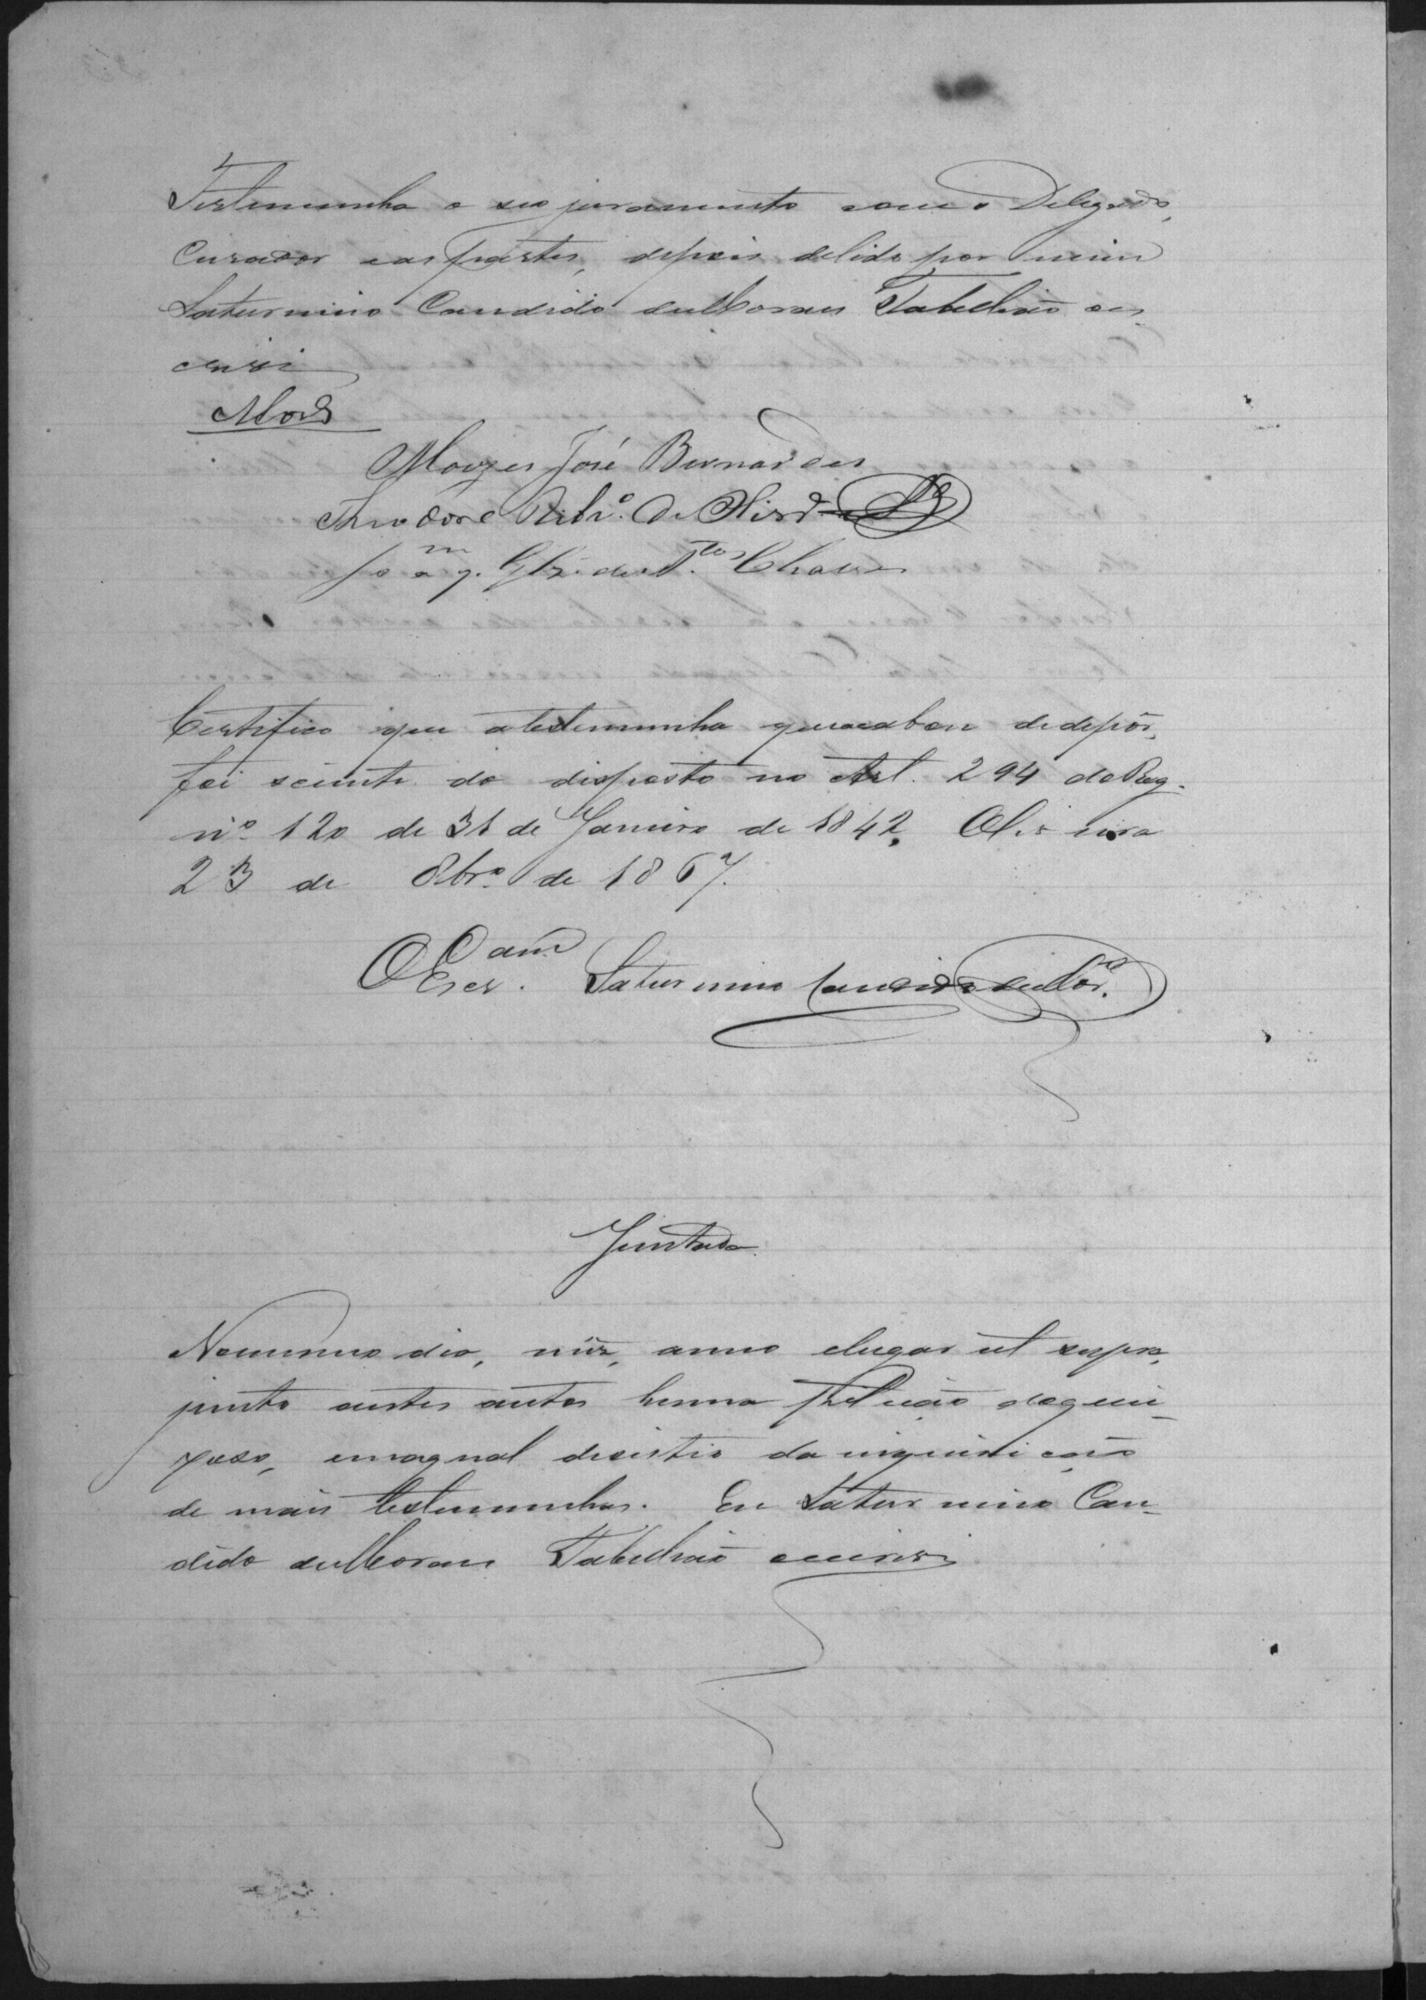 Testemunha o seo juramento com o Delegado,
Curador eas partes, depois delido por mim
Saturnino Candido de Moraes Tabelliaõ es
crivi
Mor.s
Moyzes José Bernardes
Theodoro Rib.º de Olivr.ª
Joaq.m
Chaves
Certifico que atestemunha queacabou dedepôr,
foi sciente do disposto no Art. 294 do Reg.
nº 120 de 31 de Janeiro de 1842. Oliveira
23 de 8br.º de 1867.
O Escr.am Saturnino Candido de Mor.s
Juntada
Nomesmo dia, mez, anno elugar ut supra,
junto aestes autos huma petição doquei-
xoso, emaqual desistio da inquiriçaõ
de mais testemunhas. Eu Saturnino Can-
dido de Moraes Tabelliaõ escrivi